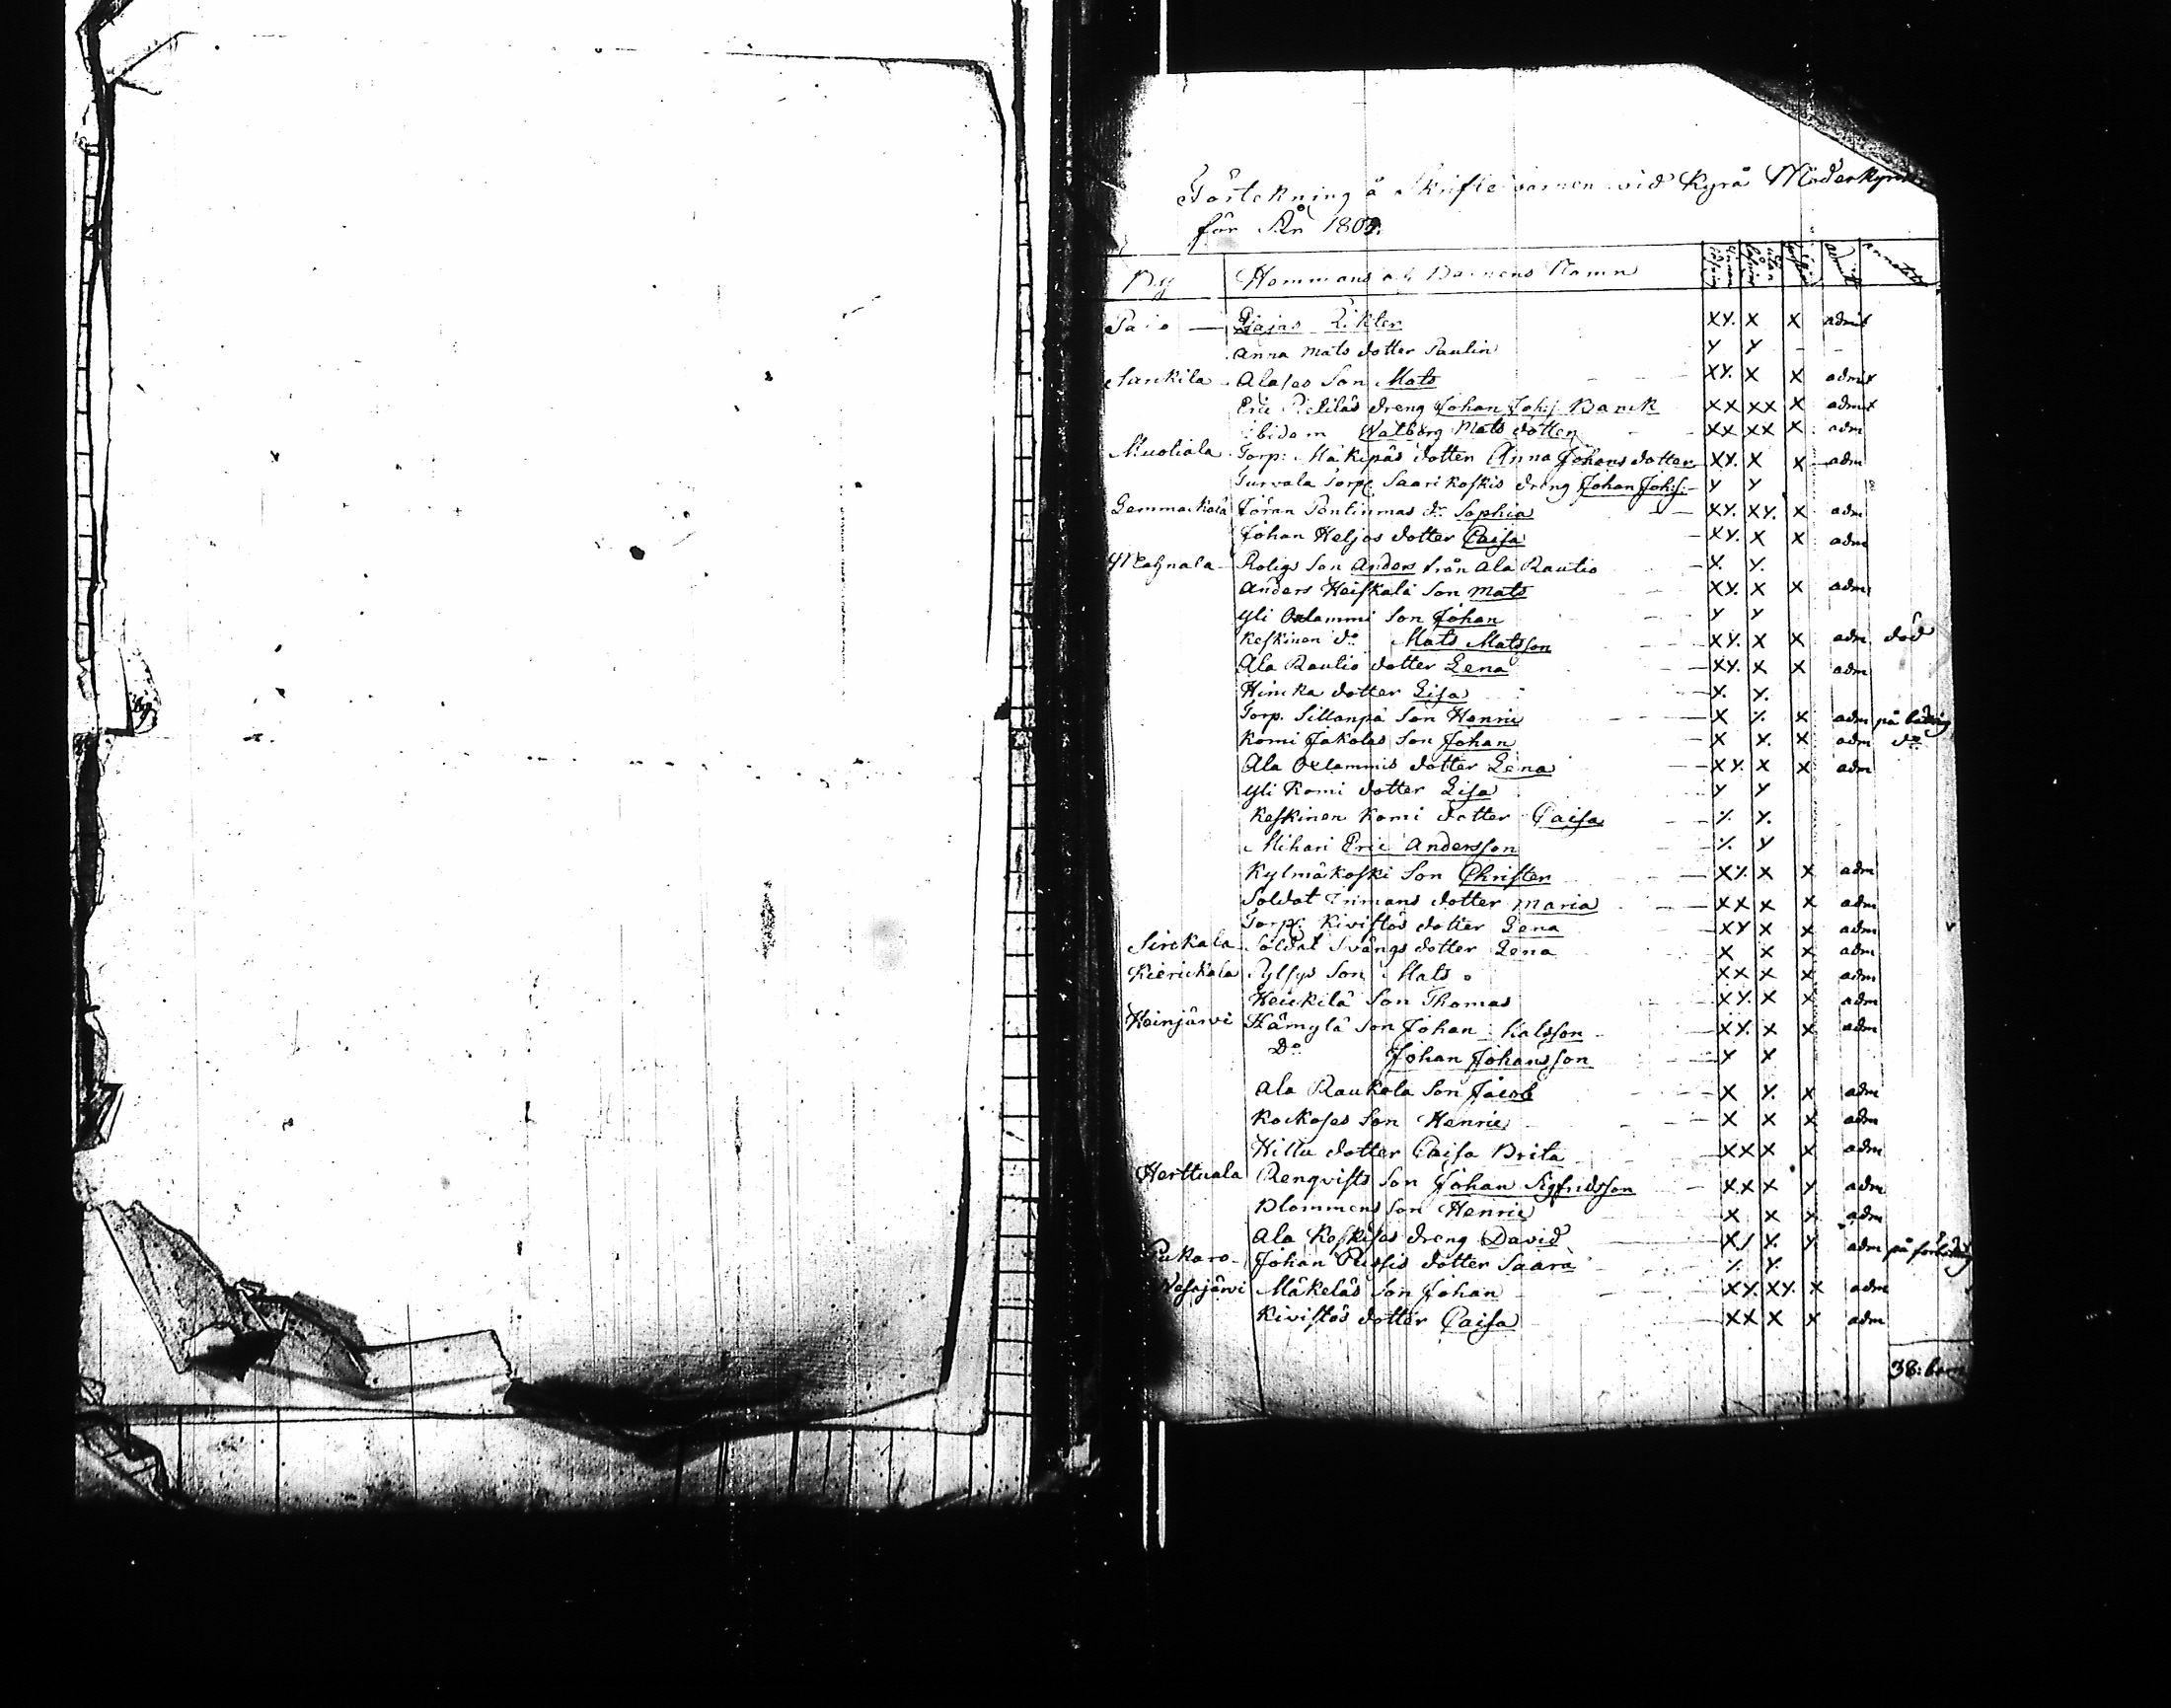 Förtekning å Skriftebarnen vid Kyrö Moderkyrka
för År 1809.
By Hemmans och Barnens Namn
admit annotat
Pajas Rikter XY. X X admit
Anna Mats dotter Paulin Y Y - -
Sarckila Alases Son Mats XY. X X admit
Eric Pietiläs dreng Johan Johs Banck XX XX X admit
ibidem Walborg Mats dotter XX XX X adm
Muotiala Torp: Mäkipäs dotter Anna Johans dotter XY. X X adm
Turvala Torp: Saarikoskis dreng Johan Johs: Y Y
Lemmackala Jöran Pentinmas do Sophia XY. XY. X adm
Johan Heljos dotter Caisa XY. X X adm
Mahnala Roligs Son Anders från Ala Rautio X. Y.
Anders Heiskala Son Mats XY. X X adm
Yli Oxlammi Son Johan Y Y
Keskinen do Mats Matsson XY. X X adm död
Ala Rautio dotter Lena XY. X X adm
Hincka dotter Lisa X. Y.
Torp. Sillanpä Son Henric X Y. X adm på bättring
Komi Jakolas Son Johan X X. X adm do
Ala Oxlammis dotter Lena XY. X X adm
Yli Komi dotter Lisa Y Y
Keskinen Komi dotter Caisa Y. Y.
Mihari Eric Andersson Y. Y
Kylmäkoski Son Christer XY. X X adm
Soldat Trimans dotter Maria XX X X adm
Torp: Kivistös dotter Lena XY X X adm
Sirckala Soldat Svängs dotter Lena X X X adm
Kierickala Pylsys Son Mats XX X X adm
Heickilä Son Thomas XY. X X adm
Heinjärvi Hämylä Son Johan XY. X X adm
Do Johan Johansson Y X
Ala Raukola Son Jacob X Y. X adm
Kockoses Son Henric X X X adm
Hillu dotter Caisa Brita XX X X adm
Herttuala Renqvists Son Johan Sigfridsson XX X Y adm
Blommens Son Henric X X Y adm
Ala Keskises dreng David XY Y. Y adm på förbättring
Pukaro Johan Pussis dotter Saara Y. Y.
Vesajärvi Mäkeläs Son Johan XY. XY. X adm
Kivistös dotter Caisa XX X X adm
38: barn